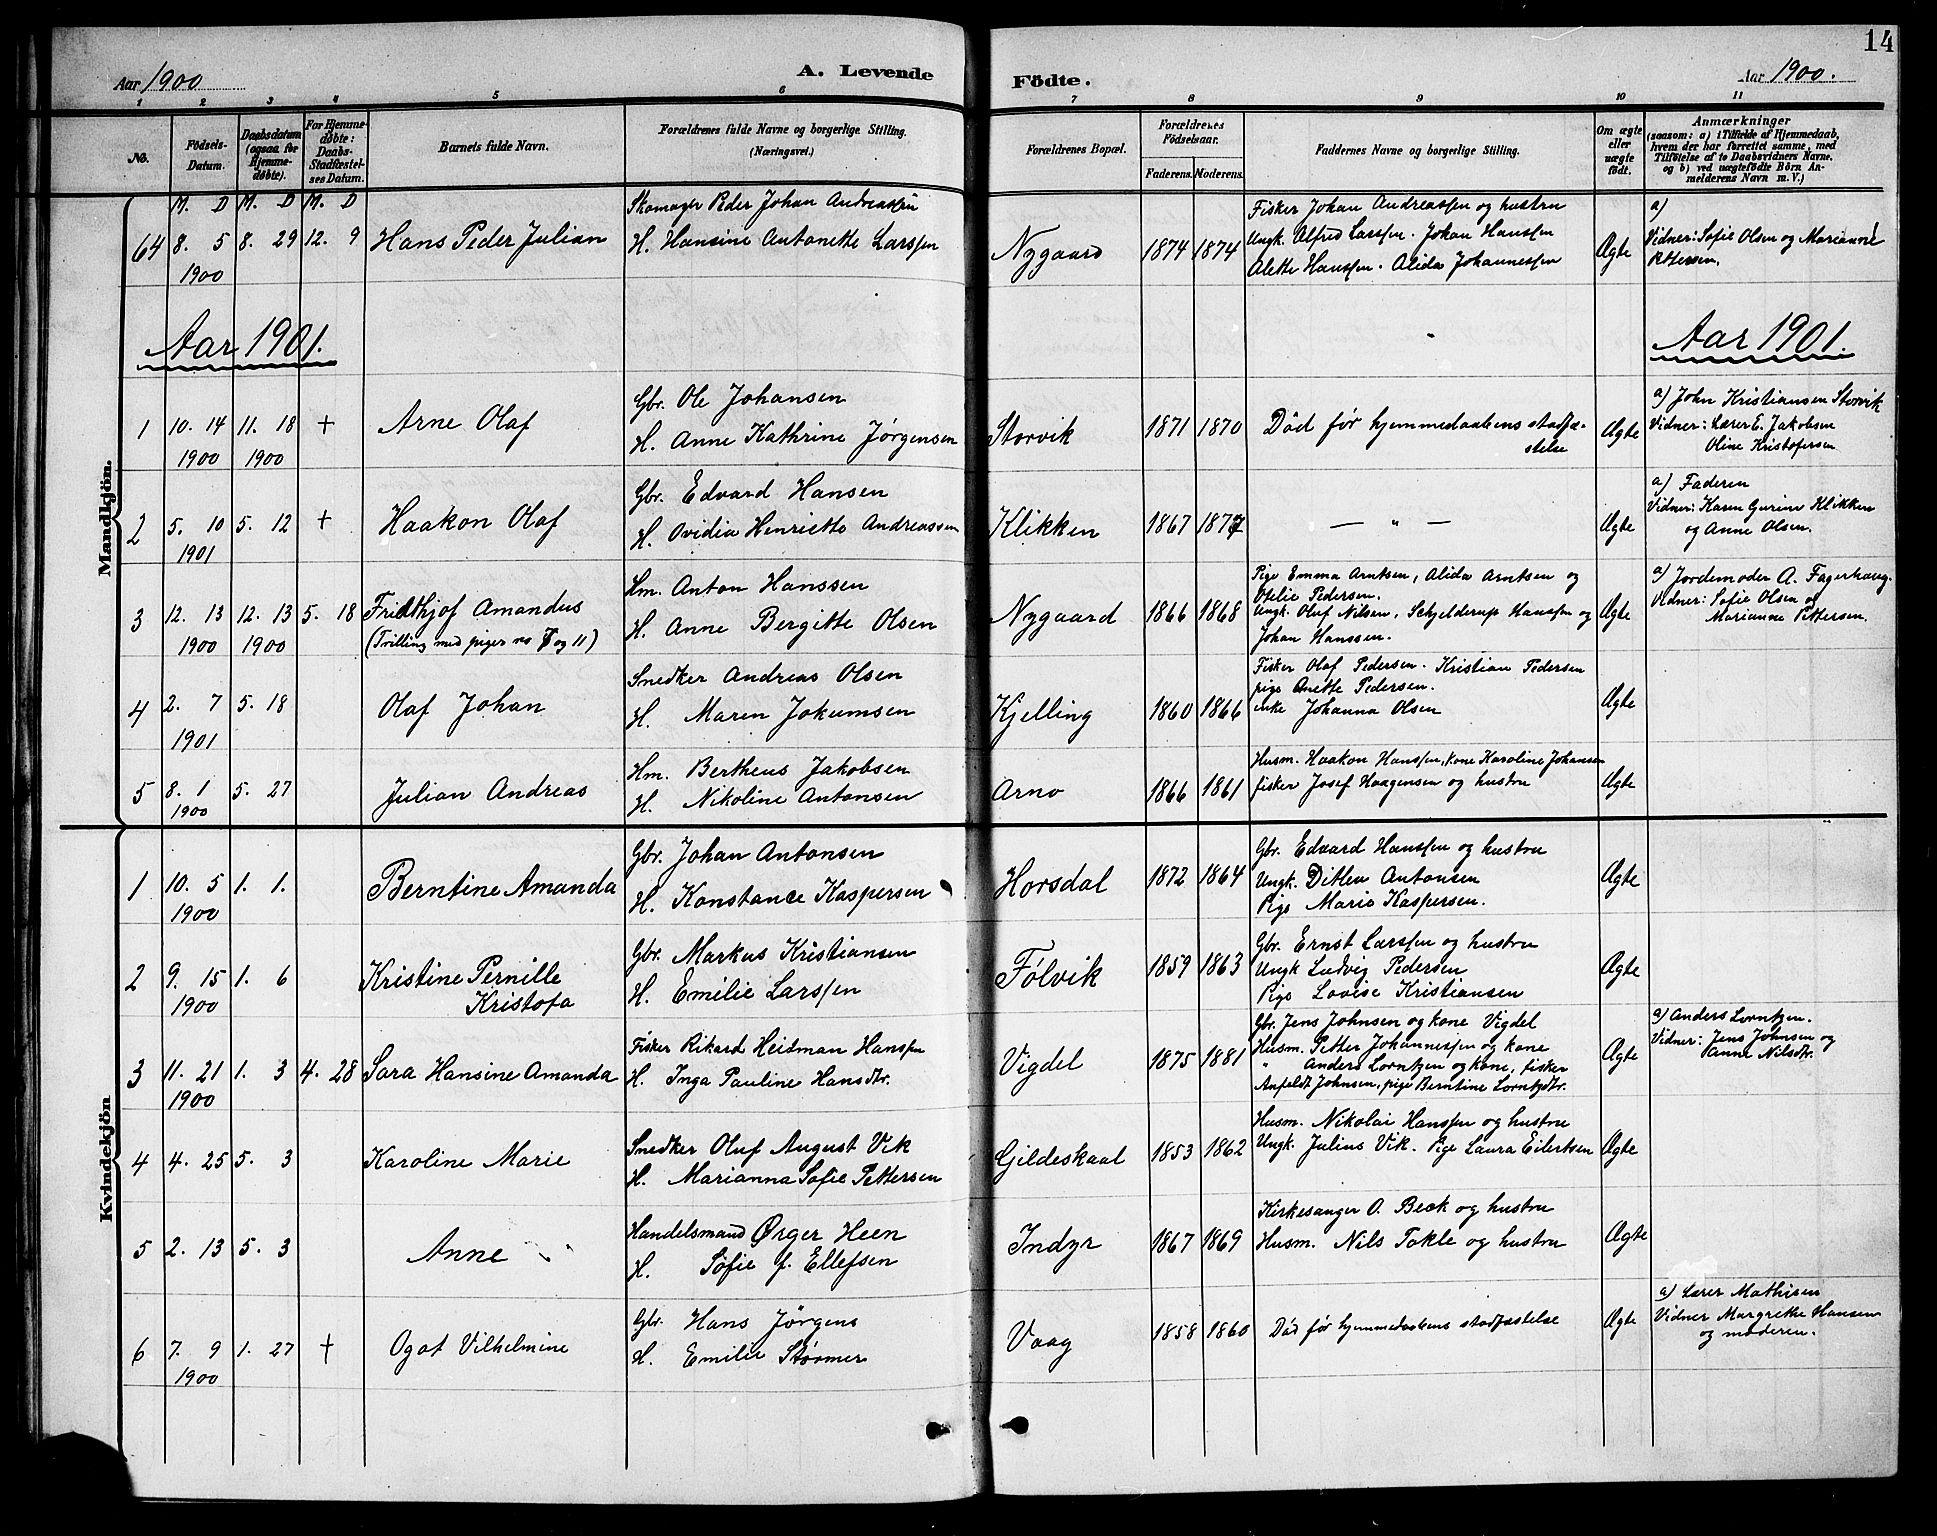 14
Aar 1900
A. Levende
Födte.
Aar 1900.
1 2 3 4 5 6 7 8 9 10 11
No.
Födsels-Datum.
Daabsdatum (ogsaa for Hjemme-døbte).
For Hjemme-døbte: Daabs-Stadfæstel-ses Datum.
Barnets fulde Navn.
Forældrenes fulde Navne og borgerlige Stilling. (Næringsvei.)
Forældrenes Bopæl.
Forældrenes Födselsaar.
Faderens. Moderens.
Faddernes Navne og borgerlige Stilling.
Om ægte eller uægte födt.
Anmærkninger
(saasom: a) i Tilfælde af Hjemmedaab, hvem der har forrettet samme, med Tilföielse af to Daabsvidners Navne. og b) ved uægtefödte Börn An-melderens Navn m. V.)
Mandkjön.
M. D M. D M. D
64 8. 5 8. 29 12. 9
1900
Hans Peder Julian
Skomager Peder Johan Andreassen
H. Hansine Antonette Larssen
Nygaard 1874 1874
Fisker Johan Andreassen og hustru
Ungk. Alfred Larssen. Johan Hanssen
Alette Hanssen. Alida Johannessen
Ægte
a)
Vidner: Sofie Olsen og Marianne
Pettersen.
Aar 1901.
"
Aar 1901.
1 10. 14 11. 18 +
1900 1900
Arne Olaf
Gbr. Ole Johansen
H. Anne Kathrine Jørgensen
Storvik 1871 1870
Død før hjemmedaabens stadfæ-
stelse
Ægte
a) John Kristiansen Storvik
Vidner: Lærer E. Jakobsen
Oline Kristofersen
2 5. 10 5. 12 +
1901
Haakon Olaf
Gbr. Edvard Hansen
H. Ovidia Henriette Andreassen
Klikken 1867 1877
— " —
Ægte
a) Faderen
Vidner: Karen Gurine Klikken
og Anne Olsen.
3 12. 13 12. 13 5. 18
1900 1900
Fridthjof Amandus
(Trilling med piger no 7 og 11)
Hm. Anton Hanssen
H. Anne Bergitte Olsen
Nygaard 1866 1868
Pige Emma Arntsen, Alida Arntsen og
Ofelie Pedersen.
Ungk. Oluf Nilsen, Schjelderup Hanssen og
Johan Hanssen.
Ægte
a) Jordemoder A. Fagerhaug.
Vidner: Sofie Olsen og
Marianne Pettersen.
4 2. 7 5. 18
1901
Olaf Johan
Snedker Andreas Olsen
H. Maren Jokumsen
Kjelling 1860 1866
Fisker Olaf Pedersen. Kristian Pedersen
pige Anette Pedersen.
enke Johanna Olsen
Ægte
5 8. 1 5. 27
1900
Julian Andreas
Hm. Bertheus Jakobsen
H. Nikoline Antonsen
Arnø 1866 1861
Husm. Haakon Hanssen, kone Karoline Johansen
fisker Josef Haagensen og hustru
Ægte
Kvindekjön
1 10. 5 1. 1.
1900
Berntine Amanda
Gbr. Johan Antonsen
H. Konstance Kaspersen
Horsdal 1872 1864
Gbr. Edvard Hanssen og hustru
Ungk. Ditlev Antonsen
Pige Marie Kaspersen.
Ægte
2 9. 15 1. 6
1900
Kristine Pernille
Kristofa
Gbr. Markus Kristiansen
H. Emilie Larssen
Følvik 1859 1863
Gbr. Ernst Larssen og hustru
Ungk Ludvig Pedersen
Pige Lovise Kristiansen
Ægte
3 11. 21 1. 3 4. 28
1900
Sara Hansine Amanda
Fisker Rikard Heitman Hanssen
H. Inga Pauline Hansdtr.
Vigdel 1875 1881
Gbr. Jens Johnsen og kone Vigdel
Husm. Petter Johannessen og kone
" Anders Lorntzen og kone, fisker
Anfeldt Johnsen, pige Berntine Lorntzdtr.
Ægte
a) Anders Lorntzen.
Vidner: Jens Johnsen og
Anne Nilsdtr.
4 4. 25 5. 3
Karoline Marie
Snedker Oluf August Vik
H. Marianna Sofie Pettersen
Gildeskaal 1853 1862
Husm. Nikolai Hanssen og hustru
Ungk. Julius Vik. Pige Laura Eilertsen
Ægte
5 2. 13 5. 3
Anne
Handelsmand Ørger Heen
H. Sofie f. Ellefsen
Indyr 1867 1869
Kirkesanger O. Beck og hustru
Husm. Nils Tokle og hustru
Ægte
6 7. 9 1. 27 +
1900
Ogot Vilhelmine
Gbr. Hans Jørgens
H. Emilie Størmer
Vaag 1858 1860
Død før hjemmedaabens stadfæstelse
Ægte
a) Lærer Mathisen
Vidner Margrethe Hansen
og moderen.